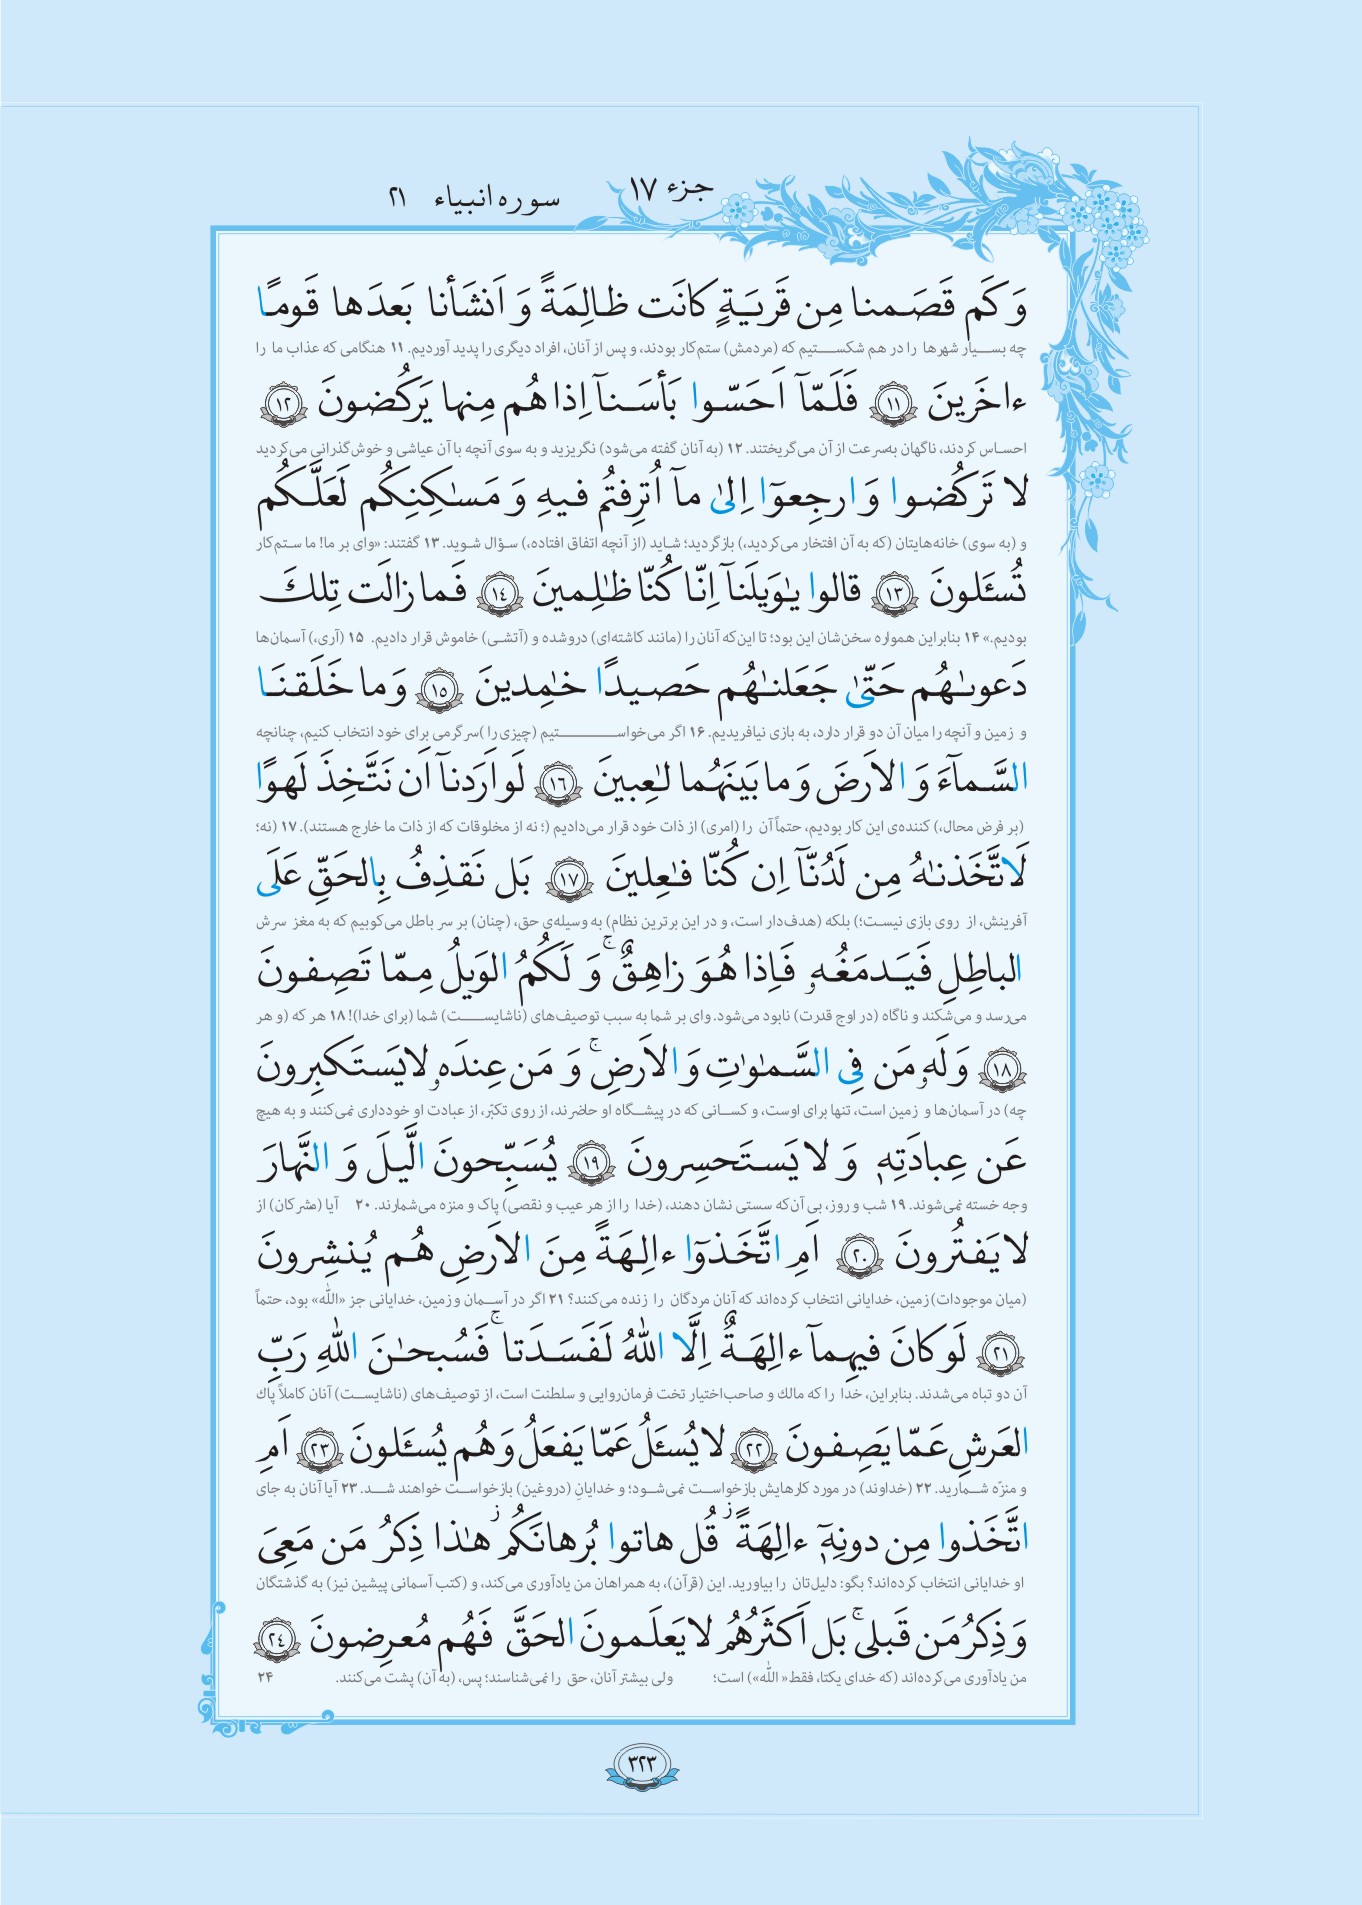 جزء ۱۷
سوره انبیاء ۲۱
وَ كَم قَصَمنا مِن قَريَةٍ كانَت ظالِمَةً وَ اَنشَأنا بَعدَها قَومًا
چه بسیار شهرها را در هم شکستیم که (مردمش) ستم‌کار بودند، و پس از آنان، افراد دیگری را پدید آوردیم. ۱۱ هنگامی که عذاب ما را
ءاخَرينَ ١١ فَلَمّآ اَحَسّوا بَأسَنآ اِذا هُم مِنها يَركُضونَ ١٢
احساس کردند، ناگهان به‌سرعت از آن می‌گریختند. ۱۲ (به آنان گفته می‌شود) نگریزید و به سوی آنچه با آن عیاشی و خوش‌گذرانی می‌کردید
لا تَركُضوا وَ ارجِعوٓا اِلىٰ مآ اُترِفتُم فيهِ وَ مَسٰكِنِكُم لَعَلَّكُم
و (به سوی) خانه‌هایتان (که به آن افتخار می‌کردید،) بازگردید؛ شاید (از آنچه اتفاق افتاده،) سؤال شوید. ۱۳ گفتند: «وای بر ما! ما ستم‌کار
تُسـَٔلونَ ١٣ قالوا يٰوَيلَنآ اِنّا كُنّا ظٰلِمينَ ١٤ فَما زالَت تِلكَ
بودیم.» ۱۴ بنابراین همواره سخن‌شان این بود؛ تا این‌که آنان را (مانند کاشته‌ای) دروشده و (آتشی) خاموش قرار دادیم. ۱۵ (آری،) آسمان‌ها
دَعوىٰهُم حَتّىٰ جَعَلنٰهُم حَصيدًا خٰمِدينَ ١٥ وَ ما خَلَقنَا
و زمین و آنچه را میان آن دو قرار دارد، به بازی نیافریدیم. ۱۶ اگر می‌خواستیم (چیزی را) سرگرمی برای خود انتخاب کنیم، چنانچه
السَّمآءَ وَ الاَرضَ وَ ما بَينَهُما لٰعِبينَ ١٦ لَو اَرَدنآ اَن نَتَّخِذَ لَهوًا
(بر فرض محال،) کننده‌ی این کار بودیم، حتماً آن را (امری) از ذات خود قرار می‌دادیم (؛ نه از مخلوقات که از ذات ما خارج هستند). ۱۷ (نه؛
لَاتَّخَذنٰهُ مِن لَدُنّآ اِن كُنّا فٰعِلينَ ١٧ بَل نَقذِفُ بِالحَقِّ عَلَى
آفرینش، از روی بازی نیست؛) بلکه (هدف‌دار است، و در این برترین نظام) به وسیله‌ی حق، (چنان) بر سر باطل می‌کوبیم که به مغز سرش
الباطِلِ فَيَدمَغُهو فَاِذا هُوَ زاهِقٌ ۚ وَ لَكُمُ الوَيلُ مِمّا تَصِفونَ
می‌رسد و می‌شکند و ناگاه (در اوج قدرت) نابود می‌شود. وای بر شما به سبب توصیف‌های (ناشایست) شما (برای خدا)! ۱۸ هر که (و هر
١٨ وَ لَهو مَن فِى السَّمٰوٰتِ وَ الاَرضِ ۚ وَ مَن عِندَهو لا يَستَكبِرونَ
چه) در آسمان‌ها و زمین است، تنها برای اوست، و کسانی که در پیشگاه او حاضرند، از روی تکبّر، از عبادت او خودداری نمی‌کنند و به هیچ
عَن عِبادَتِهٖ وَ لا يَستَحسِرونَ ١٩ يُسَبِّحونَ الَّيلَ وَ النَّهارَ
وجه خسته نمی‌شوند. ۱۹ شب و روز، بی آن‌که سستی نشان دهند، (خدا را از هر عیب و نقصی) پاک و منزه می‌شمارند. ۲۰ آیا (مشرکان) از
لا يَفتُرونَ ٢٠ اَمِ اتَّخَذوٓا ءالِهَةً مِنَ الاَرضِ هُم يُنشِرونَ
(میان موجودات) زمین، خدایانی انتخاب کرده‌اند که آنان مردگان را زنده می‌کنند؟ ۲۱ اگر در آسمان و زمین، خدایانی جز «اللّٰه» بود، حتماً
٢١ لَو كانَ فيهِمآ ءالِهَةٌ اِلَّا اللّٰهُ لَفَسَدَتا ۚ فَسُبحٰنَ اللّٰهِ رَبِّ
آن دو تباه می‌شدند. بنابراین، خدا را که مالک و صاحب‌اختیار تخت فرمان‌روایی و سلطنت است، از توصیف‌های (ناشایست) آنان کاملاً پاك
العَرشِ عَمّا يَصِفونَ ٢٢ لا يُسـَٔلُ عَمّا يَفعَلُ وَ هُم يُسـَٔلونَ ٢٣ اَمِ
و منزّه شمارید. ۲۲ (خداوند) در مورد کارهایش بازخواست نمی‌شود؛ و خدایانِ (دروغین) بازخواست خواهند شد. ۲۳ آیا آنان به جای
اتَّخَذوا مِن دونِهٖٓ ءالِهَةً ز قُل هاتوا بُرهانَكُم ز هٰذا ذِكرُ مَن مَعِىَ
او خدایانی انتخاب کرده‌اند؟ بگو: دلیل‌تان را بیاورید. این (قرآن)، به همراهان من یادآوری می‌کند، و (کتب آسمانی پیشین نیز) به گذشتگان
وَ ذِكرُ مَن قَبلى ۚ بَل اَكثَرُهُم لا يَعلَمونَ الحَقَّ فَهُم مُعرِضونَ ٢٤
من یادآوری می‌کرده‌اند (که خدای یکتا، فقط «اللّٰه») است؛ ولی بیشتر آنان، حق را نمی‌شناسند؛ پس، (به آن) پشت می‌کنند. ۲۴
۳۲۳